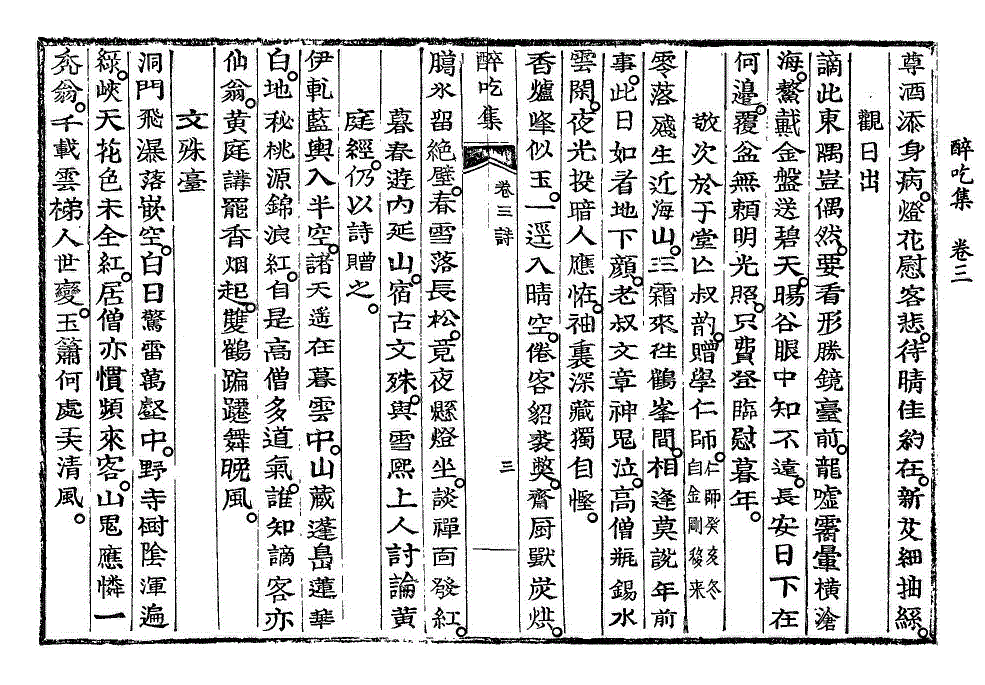 醉吃集 卷三
尊酒添身病。燈花慰客悲。待晴佳約在。新艾細抽絲。
觀日出
謫此東隅豈偶然。要看形勝鏡臺前。龍噓霱暈橫滄
海。鰲戴金盤送碧天。暘谷眼中知不遠。長安日下在
何邊。覆盆無賴明光照。只費登臨慰暮年。
敬次於于堂亡叔韵。贈學仁師。仁師癸亥冬自金剛發来
零落感生近海山。三霜來往鶴峯間。相逢莫說年前
事。此日如看地下顔。老叔文章神鬼泣。高僧甁錫水
雲閑。夜光投暗人應恠。袖裏深藏獨自慳。
香爐峰似玉。一逕入晴空。倦客貂裘弊。齋厨獸炭烘。
醉吃集 卷三 詩 三
臈氷留絶壁。春雪落長松。竟夜懸燈坐。談禪面發紅。
暮春遊內延山。宿古文殊。與雪熙上人討論黃
庭經。仍以詩贈之。
伊軋藍輿入半空。諸天遥在暮雲中。山藏蓬島蓮華
白。地秘桃源錦浪紅。自是高僧多道氣。誰知謫客亦
仙翁。黃庭講罷香烟起。雙鶴蹁躚舞晚風。
文殊臺
洞門飛瀑落嵌空。白日驚雷萬壑中。野寺樹陰渾遍
綠。峽天花色未全紅。居僧亦慣頻來客。山鬼應憐一
禿翁。千載雲梯人世變。玉簫何處美清風。